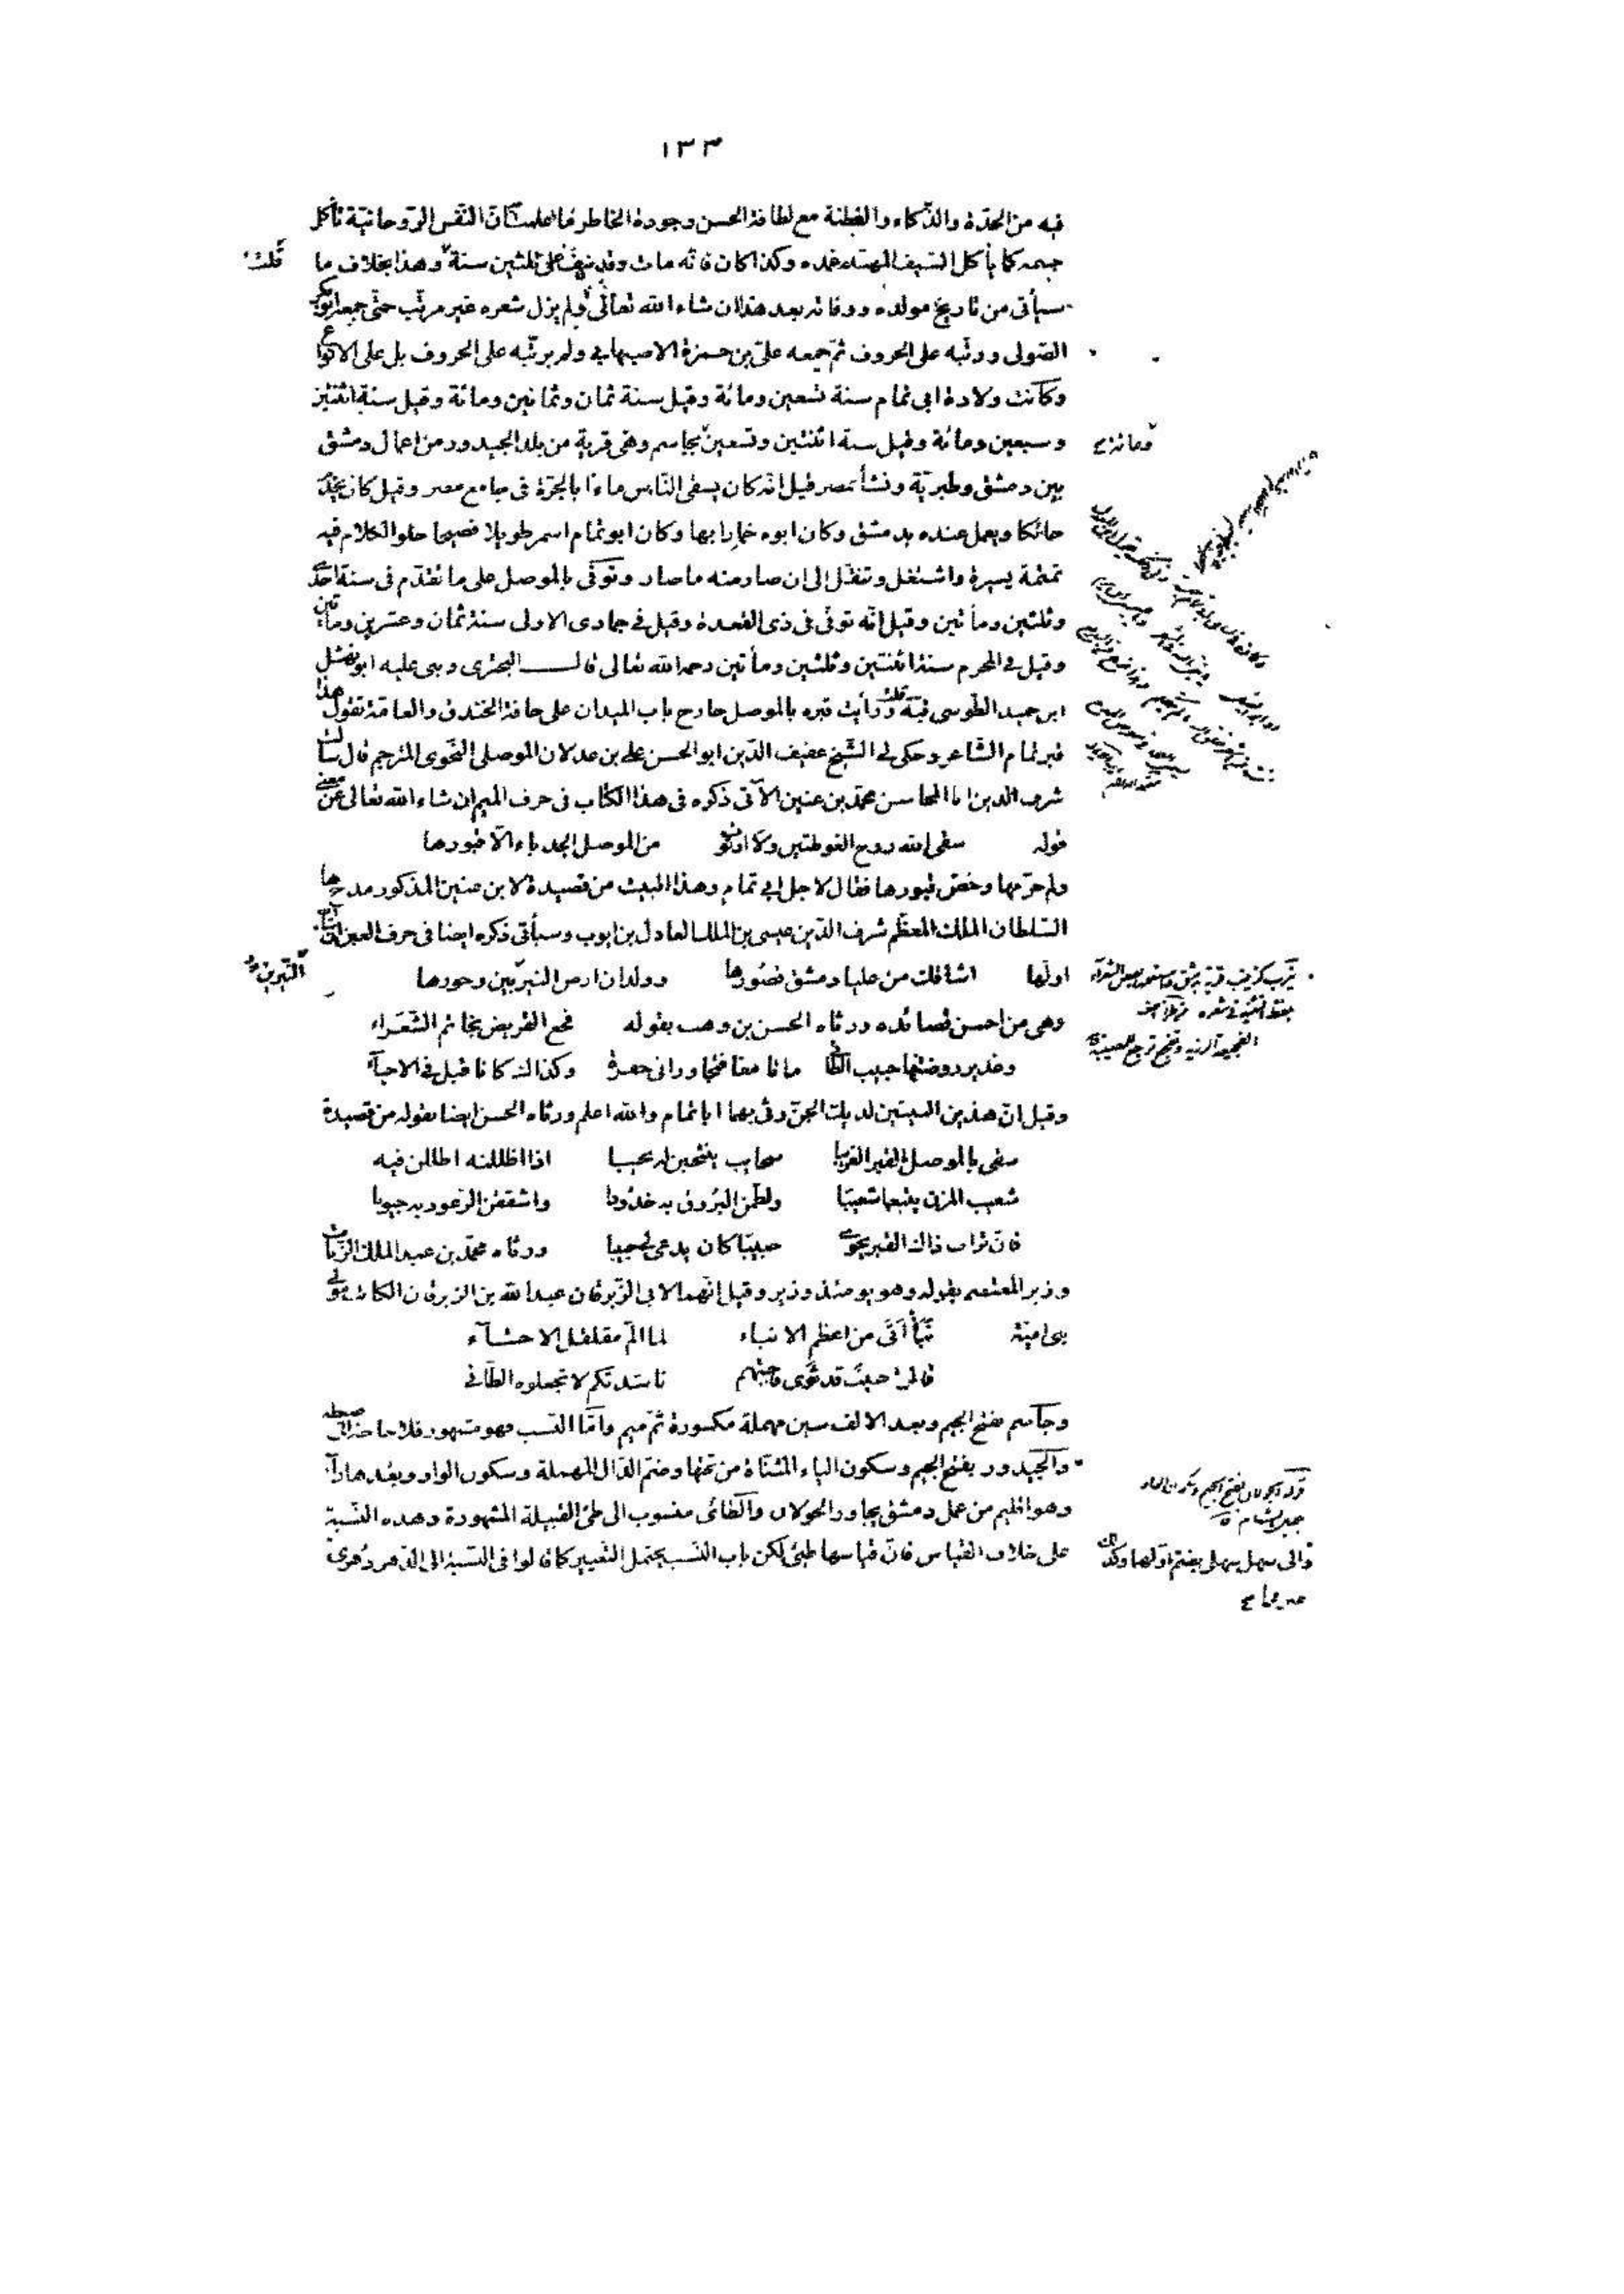 ١٣٣
فيه من الحدّة والذّكاء والفطنة مع لطافة الحسن وجودة الخاطر فما علمت انّ النّفس الرّوحانيّة تأكل
جسمه كما يأكل السّيف المهنّد غمده وكذا كان فانّه مات وقد نيّف على ثلثين سنة وهذا بخلاف ما
قلت
سيأتى من تاريخ مولده ووفاته بعد هذا ان شاء الله تعالى ولم يزل شعره غير مرتّب حتّى جمعه ابو بكر
الصّولى ورتّبه على الحروف ثمّ جمعه علىّ بن حمزة الاصبهانى ولم يرتّبه على الحروف بل على الانواع
وكانت ولادة ابى تمام سنة تسعين ومائة وقيل سنة ثمان وثمانين ومائة وقيل سنة اثنتين
وسبعين ومائة وقيل سنة اثنتين وتسعين بجاسم وهى قرية من بلد الجيدور من اعمال دمشق
ومائة
بين دمشق وطبريّة ونشأ بمصر قيل انه كان يسقى النّاس ماءً بالجرّة فى جامع مصر وقيل كان يخدم
حائكا ويعمل عنده بدمشق وكان ابوه خمارا بها وكان ابو تمام اسمر طويلا فصيحا حلو الكلام فيه
تمتمة يسيرة واشتغل وتنقّل الى ان صار منه ما صار وتوفى بالموصل على ما تقدّم فى سنة احدى
وثلثين ومأتين وقيل انّه توفى فى ذى القعدة وقيل فى جمادى الاولى سنة ثمان وعشرين ومأتين
وقيل فى المحرم سنة اثنتين وثلثين ومأتين رحمه الله تعالى قال البحترى وبنى عليه ابو نهشل
ابن حميد الطّوسى قبّة قلت ورأيت قبره بالموصل خارج باب الميدان على حافة الخندق والعامّة تقول هذا
قبر تمام الشّاعر وحكى لى الشّيخ عفيف الدّين ابو الحسن على بن عدلان الموصلى النّحوى المترجم قال سألت
شرف الدين ابا المحاسن محمّد بن عنين الآتى ذكره فى هذا الكتاب فى حرف الميم ان شاء الله تعالى عن معنى
قوله سقى الله روح الغوطتين ولا ارتوى من الموصل الجدباء الّا قبورها
ولم حرّمها وخصّ قبورها فقال لاجل ابى تمام وهذا البيت من قصيدة لابن عنين المذكور مدح بها
السّلطان الملك المعظّم شرف الدّين عيسى بن الملك العادل بن ايوب وسيأتى ذكره ايضا فى حرف العين ان شاء
اولها اشاقك من عليا دمشق قصورها وولدان ارض النيربين وحورها
النيربين
وهى من احسن قصائده ورثاه الحسن بن وهب بقوله فجع القريض بخاتم الشّعراء
وغدير روضتها حبيب الطائى ماتا معا فتجاورا فى حفرة وكذاك كانا قبل فى الاحياء
وقيل انّ هذين البيتين لديك الجنّ رثى بهما ابا تمام والله اعلم ورثاه الحسن ايضا بقوله من قصيدة
سقى بالموصل القبر الغريبا سحايب ينتحبن له نحيبا اذا اظللنه اطللن فيه
شعيب المزن يتبعها شعيبا ولطّمن البروق به خدودا واشققن الرّعود به جيوبا
فانّ تراب ذاك القبر يحوى حبيبا كان يدعى لى حبيبا ورثاه محمّد بن عبد الملك الزّيات
وزير المعتصم بقوله وهو يومئذ وزير وقيل انّهما لابى الزّبرقان عبد الله بن الزبرقان الكاتب مولى
بنى اميّة نبأ اتى من اعظم الانباء لما المّ مقلقل الاحشاء
قالوا حبيب قد ثوى فاجبتهم ناشدتكم لا تجعلوه الطّائى
وجاسم بفتح الجيم وبعد الالف سين مهملة مكسورة ثمّ ميم وامّا النّسب فهو مشهور فلا حاجة الى ضبطه
والجيدور بفتح الجيم وسكون الياء المثنّاة من تحتها وضمّ الدّال المهملة وسكون الواو وبعدها راء
وهو اقليم من عمل دمشق يجاور الجولان والطّائى منسوب الى طىّ القبيلة المشهورة وهذه النّسبة
على خلاف القياس فانّ قياسها طيئى لكن باب النّسب يحتمل التغيير كما قالوا فى النّسبة الى الدّهر دُهرىّ
والى سهل سهلى بضمّ اوّلهما وكذلك